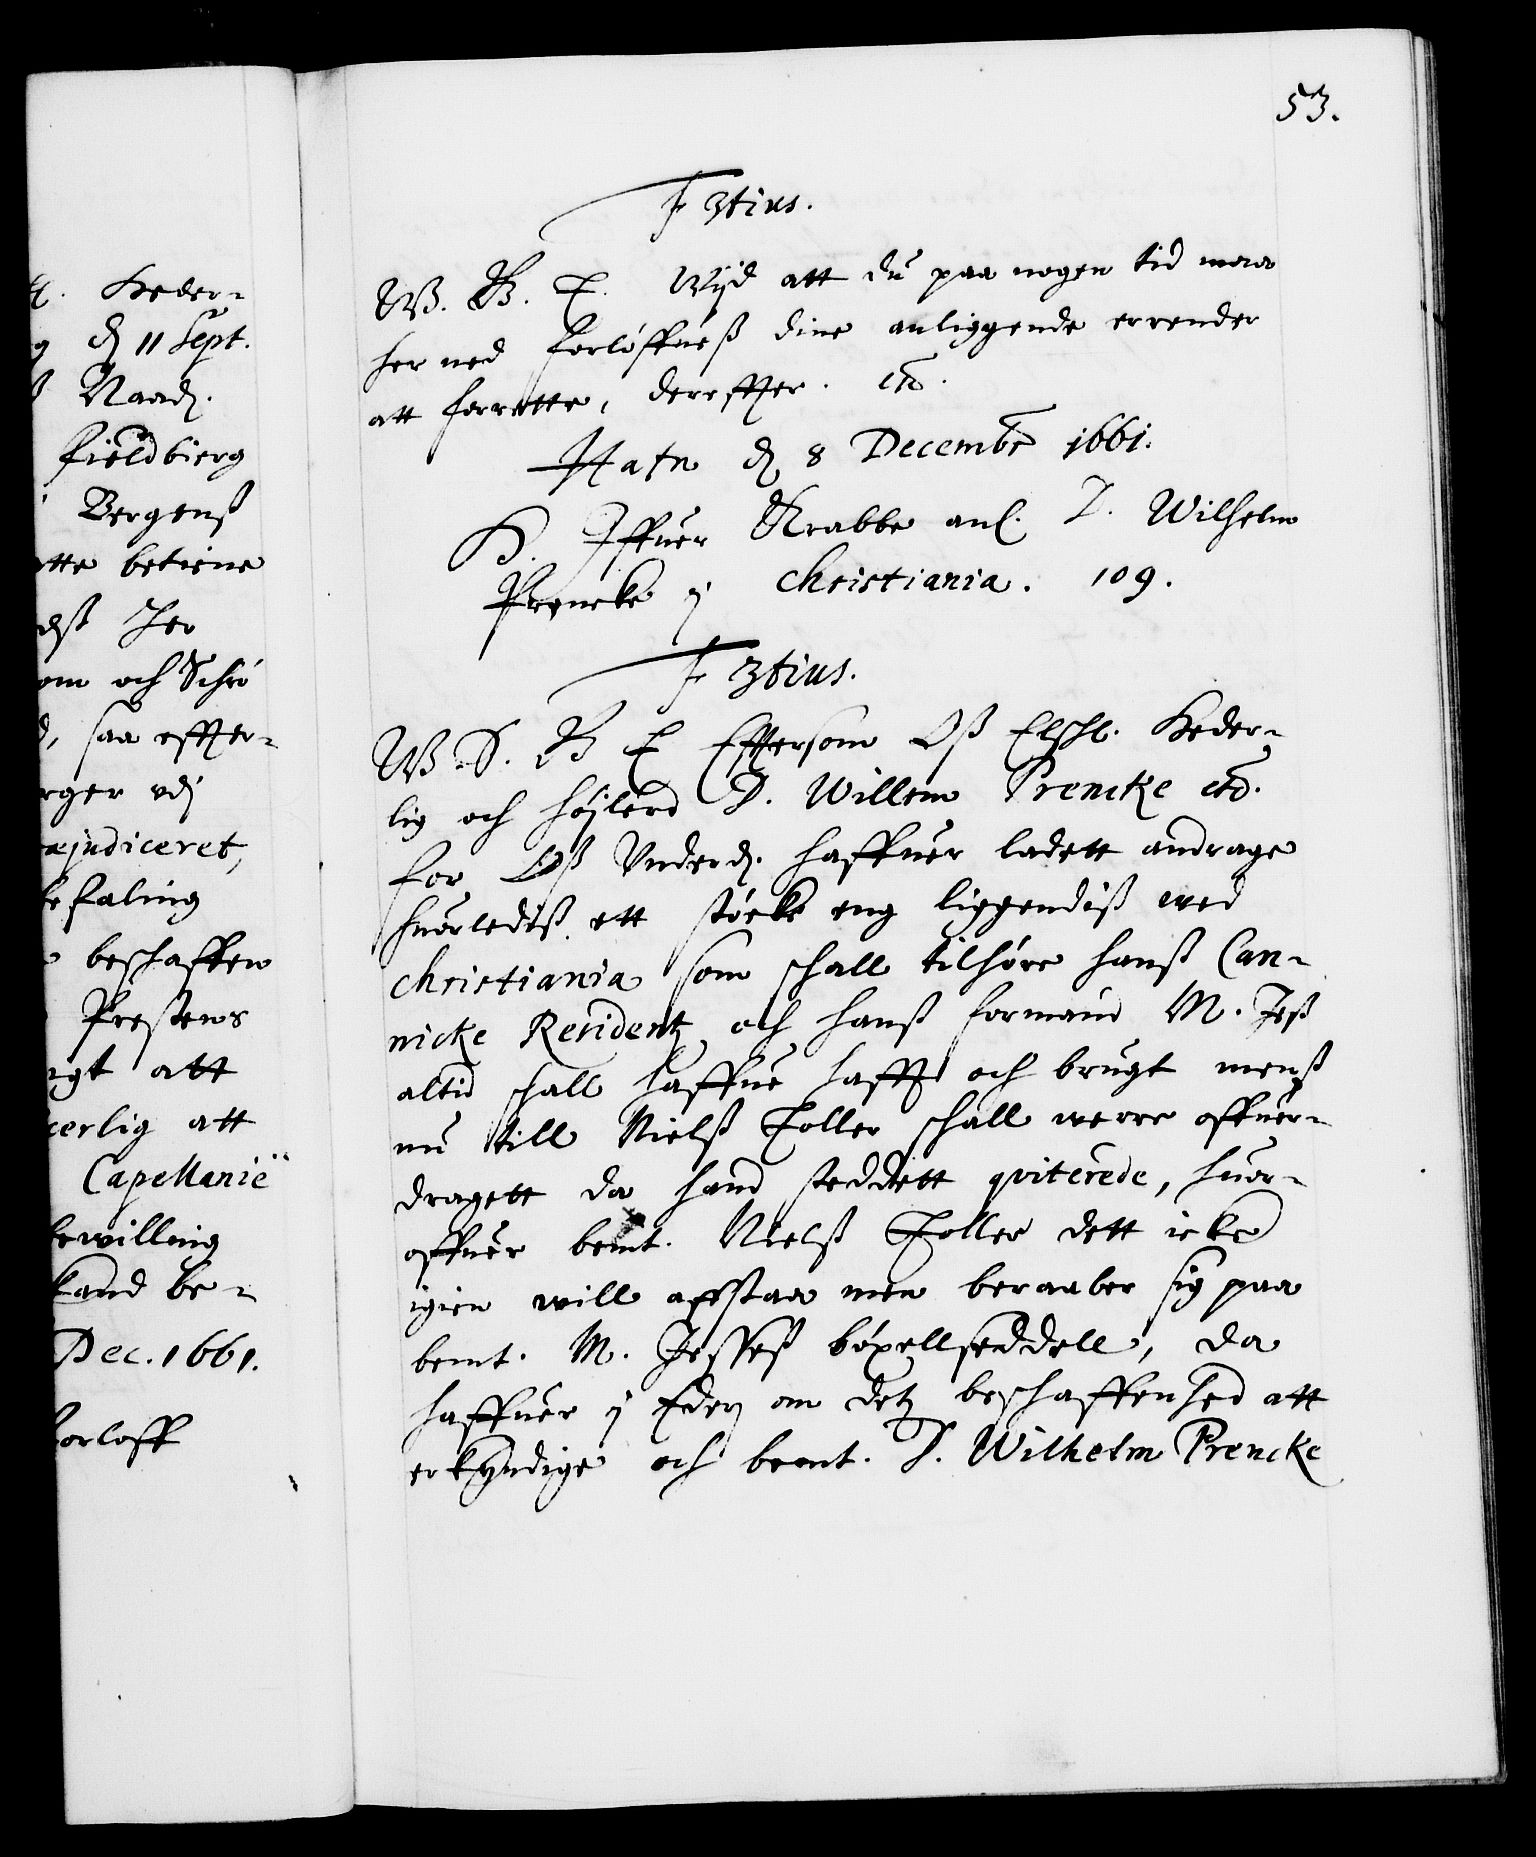 53.
F 3tius.
W. B. T. Wijd att du paa nogen tid maa
her ned forløffueß dine anliggende errender
att forrette, dereffter. etc.
Hafn d 8 Decembr 1661.
H. Iffuer Krabbe anl. D. Wilhelm
Prencke j Christiania. 109.
F 3tius.
W. S. B T Effttersom Oß Elschl. Heder-
lig och højlerd D. Willem Prencke etc.
for Oß Underd. haffuer ladett andrage
huorledeß ett støcke eng liggendiß ved
Christiania som schall tilhøre hanß Can-
nicke Residentz och hanß formand M. Jeß
altid schall haffue hafft och brugt menß
nu till Nielß Toller schall werre offuer-
dragett da hand steddett qviterede, huor-
offuer bemt. Nielß Toller dett icke
igien will affstaa men beraaber sig paa
bemt. M. Jesseß böxellseddell, da
haffuer j Eder om detz beschaffenhed att
erkyndige och bemt. D. Wilhelm Prencke
Heder-
d 11 Sept.
Naad.
Fieldbierg
Bergenß
tte betiene
Jer
om och Schri
d, saa effter-
rger udj
æjudiceret,
befaling
beschaffen
Prestens
igt att
erlig att
Capellanië
bewilling
kand be-
Dec. 1661.
forloff